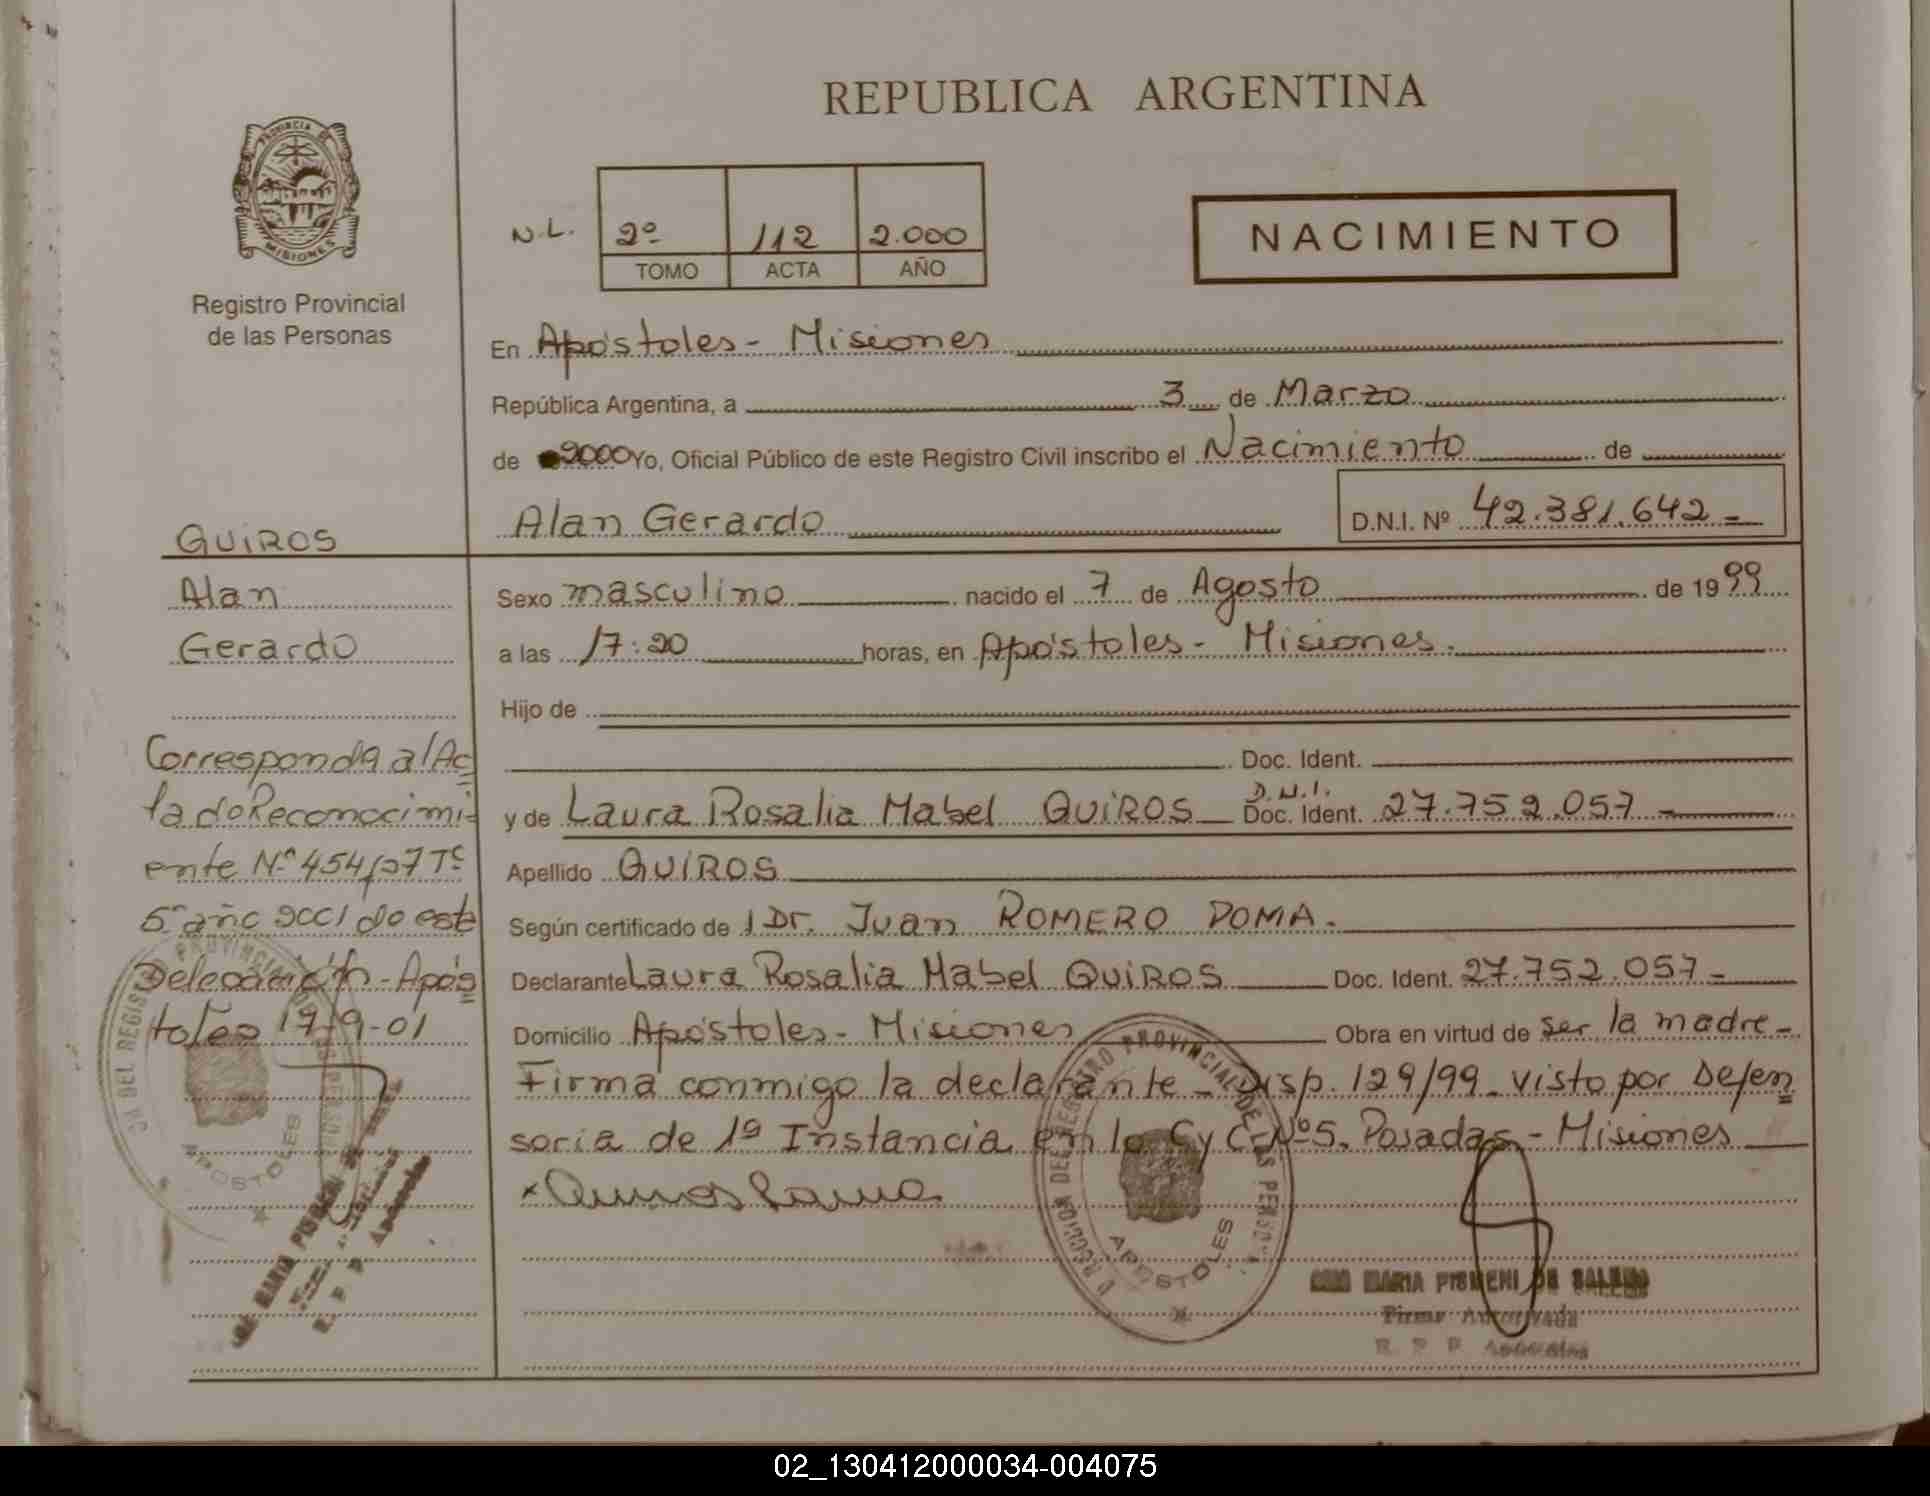 REPUBLICA ARGENTINA
PROVINCIA DE
MISIONES
Registro Provincial
de las Personas
N.L. 2º 112 2.000
TOMO ACTA AÑO
NACIMIENTO
En Apóstoles - Misiones
República Argentina, a 3 de Marzo
de 2000 Yo, Oficial Público de este Registro Civil inscribo el Nacimiento de
Alan Gerardo D.N.I. Nº 42.381.642 -
Sexo masculino nacido el 7 de Agosto de 1999
a las 17:20 horas, en Apóstoles - Misiones.
Hijo de
Doc. Ident.
y de Laura Rosalia Mabel QUIROS D.N.I. Doc. Ident. 27.752.057 -
Apellido QUIROS
Según certificado de 1 Dr. Juan ROMERO DOMA.
Declarante Laura Rosalia Mabel QUIROS Doc. Ident. 27.752.057 -
Domicilio Apóstoles - Misiones Obra en virtud de ser la madre -
Firma conmigo la declarante - Disp. 129/99 - visto por Defen
soria de 1º Instancia en lo C y C. Nº 5. Posadas - Misiones
x Quiros Laura
QUIROS
Alan
Gerardo
Corresponda al Ac
ta de Reconocimi
ente Nº 454/07 Tº
5º año 2001 de este
Delegación - Após
toles 19-9-01
REGISTRO PROVINCIAL DE LAS PERSO
APOSTOLES
MARIA PISMENI DE
DIRECCION DEL REGISTRO PROVINCIAL DE LAS PERSO
APOSTOLES
MARIA PISMENI DE
Firma Autorizada
R. P. P. Apóstoles
02_130412000034-004075